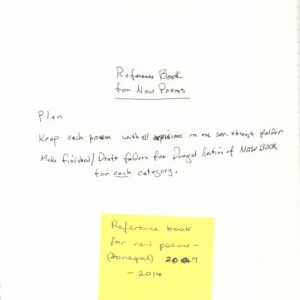 Reference Book
for New Poems
Plan
Keep each poem with all revisions in one see-through folder
Make finished/Draft folders for Donegal Section of NEW BOOK
for each category.
Reference book
for new poems -
(Donegal)
- 2014